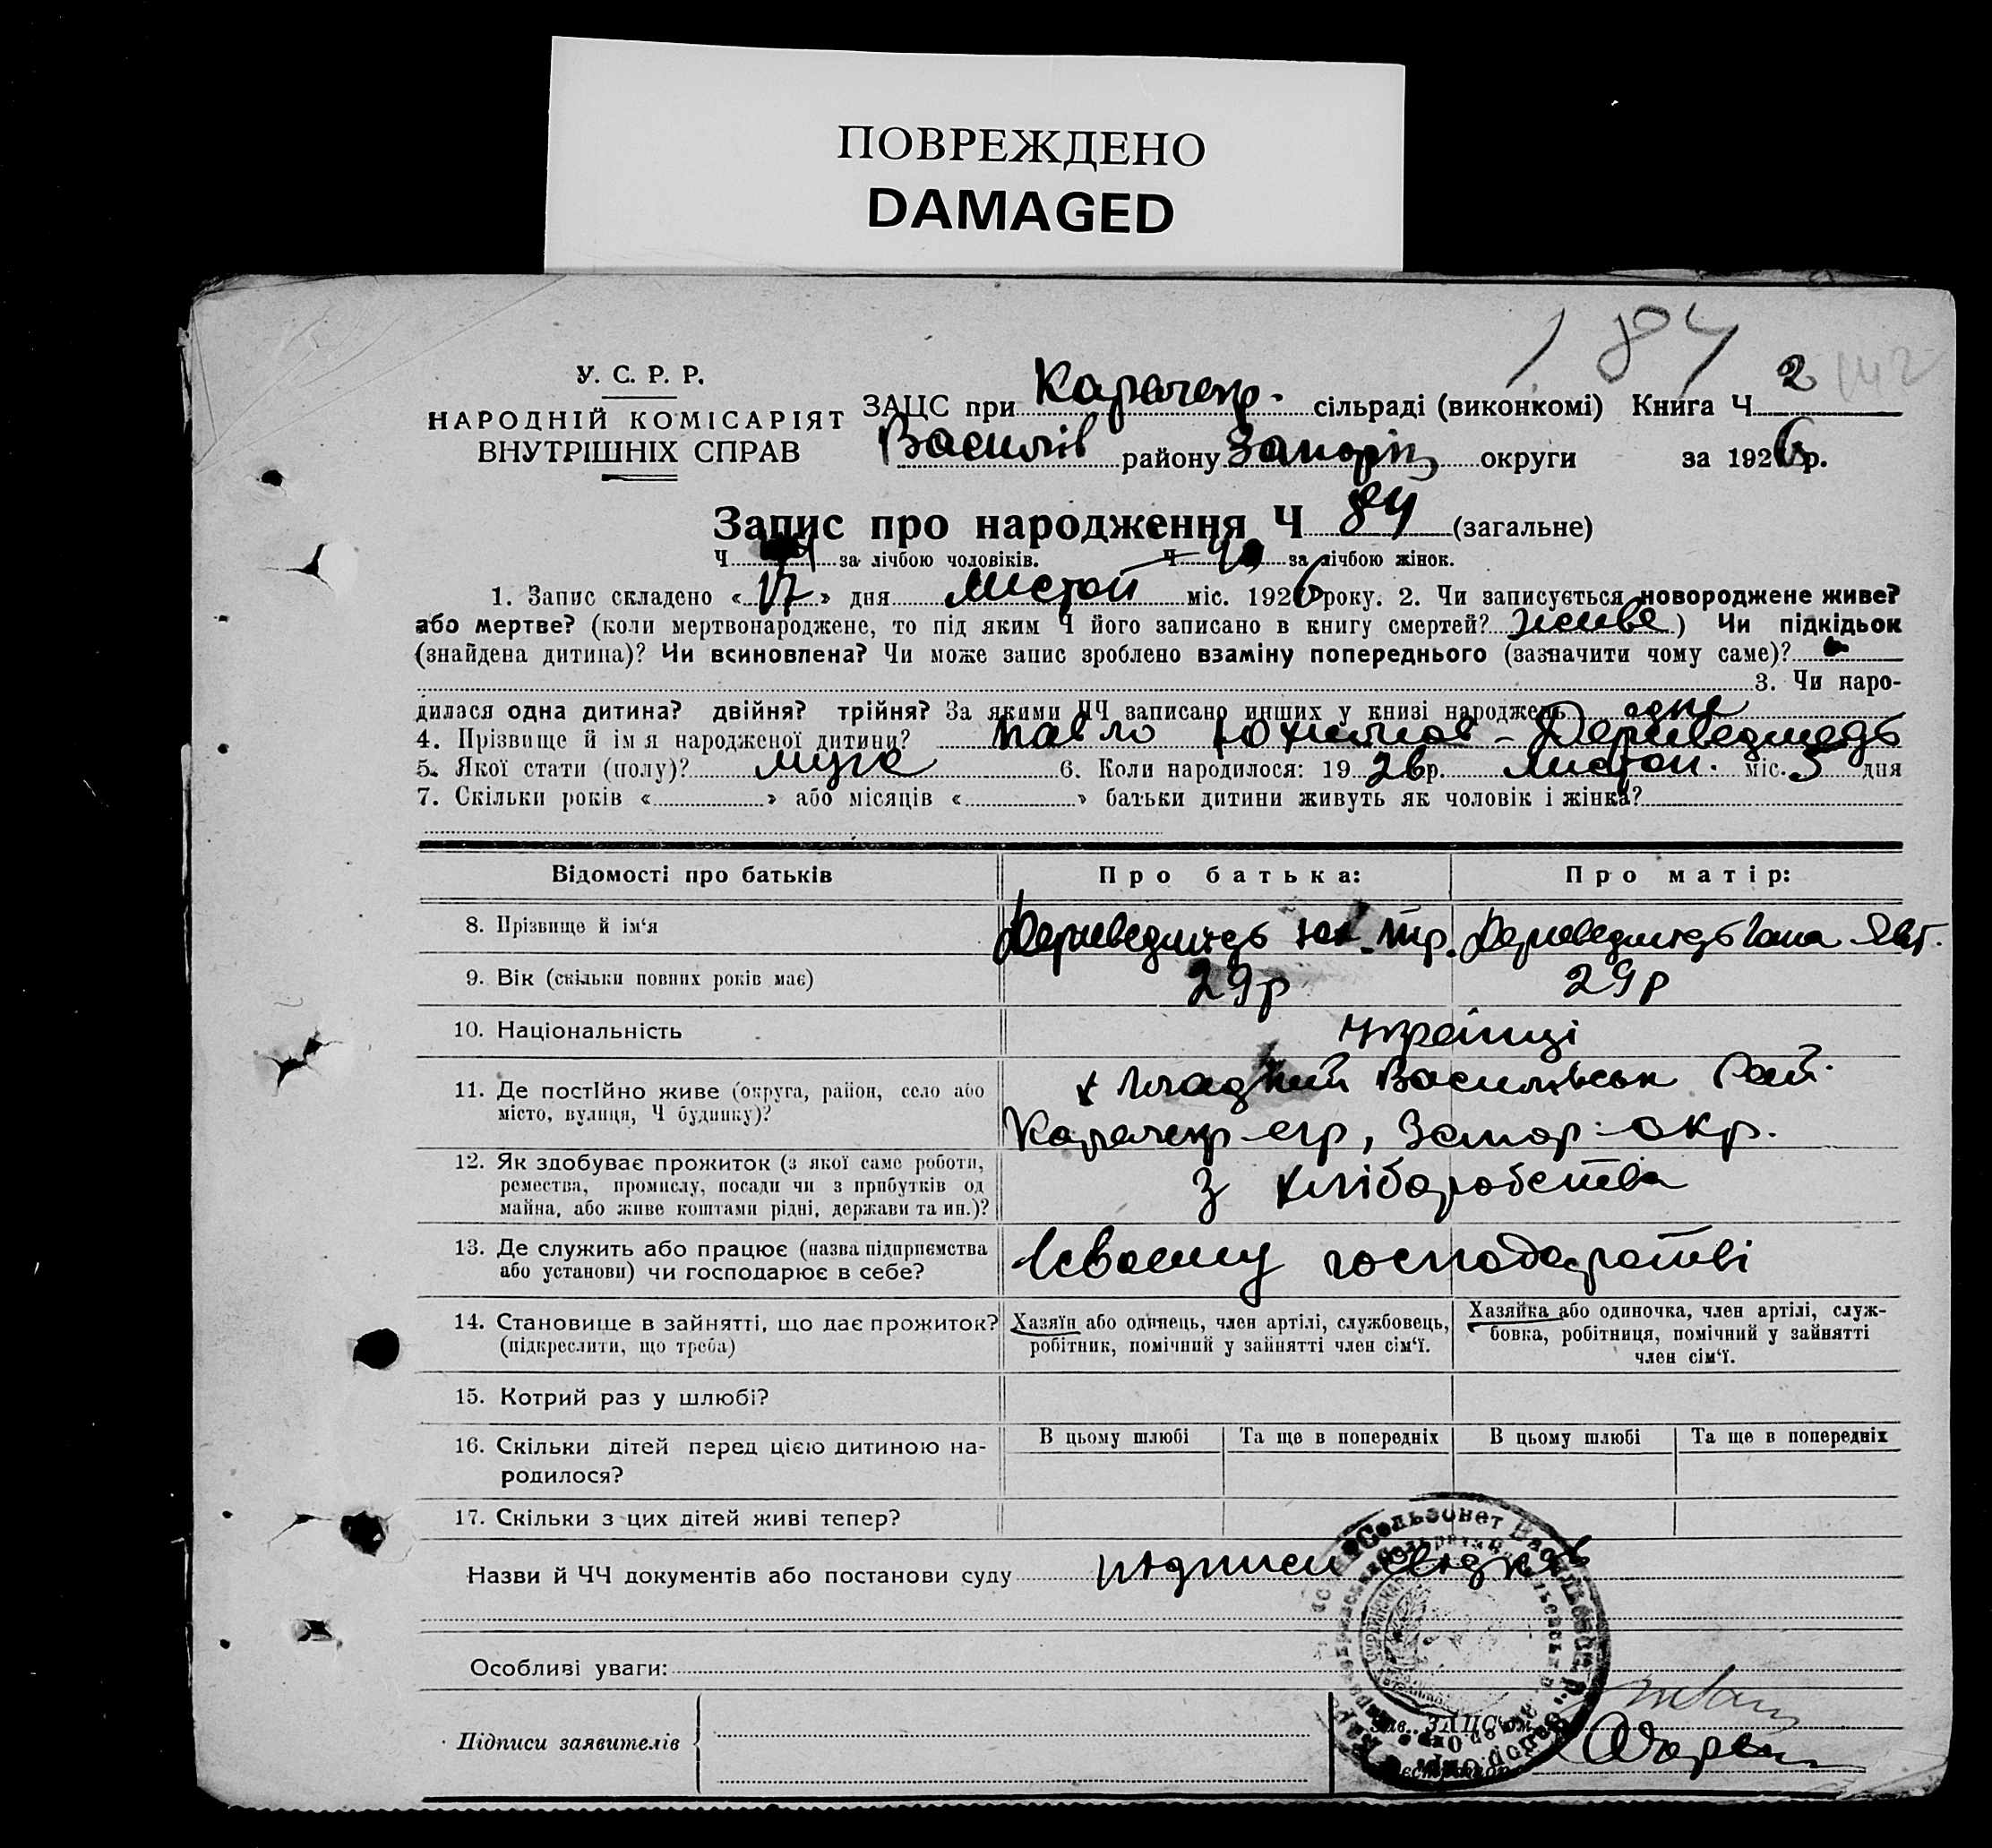 ПОВРЕЖДЕНО
DAMAGED
184
У. С. Р. Р.
НАРОДНІЙ КОМІСАРІЯТ
ВНУТРІШНІХ СПРАВ
ЗАЦС при Карачекр. сільраді (виконкомі) Книга Ч 2 142
Василів району Запоріз округи за 1926 р.
Запис про народження Ч 84 (загальне)
Ч за лічбою чоловіків. Ч за лічбою жінок.
1. Запис складено « 17 » дня листоп міс. 1926 року. 2. Чи записується новороджене живе?
або мертве? (коли мертвонароджене, то під яким Ч його записано в книгу смертей? живе) Чи підкідьок
(знайдена дитина)? Чи всиновлена? Чи може запис зроблено взаміну попереднього (зазначити чому саме)?
3. Чи наро-
дилася одна дитина? двійня? трійня? За якими ЧЧ записано инших у книзі народжень одне
4. Прізвище й імя народженої дитини? Павло Юхимов - Дериведмедь
5. Якої стати (полу)? муже 6. Коли народилося: 19 26 р. листоп. міс. 5 дня
7. Скільки років « » або місяців « » батьки дитини живуть як чоловік і жінка?
Відомості про батьків Про батька: Про матір:
8. Прізвище й ім‘я Дериведмедь Юх. Дериведмедь Гана Явт.
9. Вік (скільки повних років має) 29 р 29 р
10. Національність Українці
11. Де постійно живе (округа, район, село або
місто, вулиця, Ч будинку)?
х Гладкий Васильівськ Рай.
Карачекр с-гр, Запор. окр.
12. Як здобуває прожиток (з якої саме роботи,
ремества, промислу, посади чи з прибутків од
майна, або живе коштами рідні, держави та ин.)?
З хліборобства
13. Де служить або працює (назва підприємства
або установи) чи господарює в себе?
в своєму господарстві
14. Становище в зайнятті, що дає прожиток?
(підкреслити, що треба)
Хазяїн або одинець, член артілі, службовець,
робітник, помічний у зайнятті член сім‘ї.
Хазяйка або одиночка, член артілі, служ-
бовка, робітниця, помічний у зайнятті
член сім‘ї.
15. Котрий раз у шлюбі?
16. Скільки дітей перед цією дитиною на-
родилося?
В цьому шлюбі Та ще в попередніх В цьому шлюбі Та ще в попередніх
17. Скільки з цих дітей живі тепер?
Назви й ЧЧ документів або постанови суду підписи свідків
Особливі уваги:
Підписи заявителів
Зав. ЗАЦС'ом